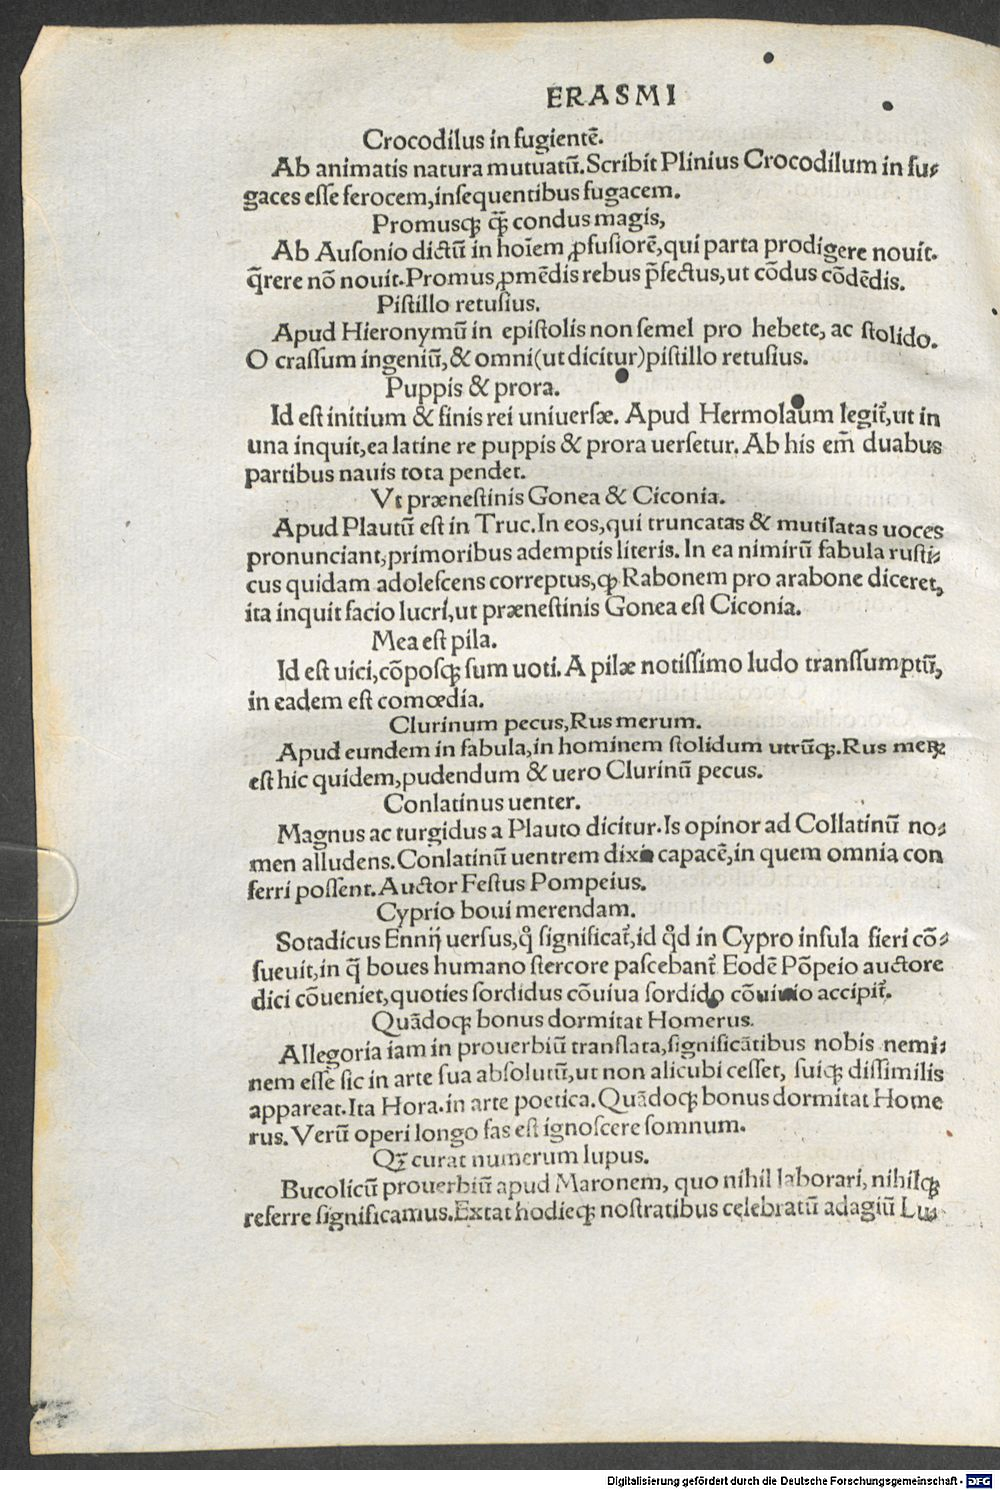 ERASMI
Crocodilus in fugientē.
Ab animatis natura mutuatū. Scribit Plinius Crocodilum in fu⸗
gaces eſſe ferocem, inſequentibus fugacem.
Promusqꝫ q̄ꝫ condus magis,
Ab Auſonio dictū in hoīem ꝓfuſiorē, qui parta prodigere nouit.
q̄rere nō nouit. Promus ꝓmēdis rebus p̄fectus, ut cōdus cōdēdis.
Piſtillo retuſius.
Apud Hieronymū in epiſtolis non ſemel pro hebete, ac ſtolido.
O craſſum ingeniū, & omni (ut dicitur) piſtillo retuſius.
Puppis & prora.
Id eſt initium & finis rei uniuerſæ. Apud Hermolaum legit᷑, ut in
una inquit, ea latine re puppis & prora uerſetur. Ab his em̄ duabus
partibus nauis tota pendet.
Vt præneſtinis Gonea & Ciconia.
Apud Plautū eſt in Truc. In eos, qui truncatas & mutilatas uoces
pronunciant, primoribus ademptis literis. In ea nimirū fabula ruſti⸗
cus quidam adoleſcens correptus, ꝙ Rabonem pro arabone diceret,
ita inquit facio lucri, ut præneſtinis Gonea eſt Ciconia.
Mea eſt pila.
Id eſt uici, cōpoſqꝫ ſum uoti. A pilæ notiſſimo ludo tranſſumptū,
in eadem eſt comœdia.
Clurinum pecus, Rus merum.
Apud eundem in fabula, in hominem ſtolidum utrūqꝫ. Rus meꝝ
eſt hic quidem, pudendum & uero Clurinū pecus.
Conlatinus uenter.
Magnus ac turgidus a Plauto dicitur. Is opinor ad Collatinū no⸗
men alludens. Conlatinū uentrem dixit capacē, in quem omnia con
ferri poſſent. Auctor Feſtus Pompeius.
Cyprio boui merendam.
Sotadicus Ennij uerſus, qͦ ſignificat᷑, id qͦd in Cypro inſula fieri cō⸗
ſueuit, in q̄ boues humano ſtercore paſcebant᷑. Eodē Pōpeio auctore
dici cōueniet, quoties ſordidus cōuiua ſordido cōuiuio accipit᷑.
Quādoqꝫ bonus dormitat Homerus.
Allegoria iam in prouerbiū tranſlata, ſignificātibus nobis nemi⸗
nem eſſe ſic in arte ſua abſolutū, ut non alicubi ceſſet, ſuiqꝫ diſſimilis
appareat. Ita Hora. in arte poetica. Quādoqꝫ bonus dormitat Home
rus. Verū operi longo fas eſt ignoſcere ſomnum.
Qꝫ curat numerum lupus.
Bucolicū prouerbiū apud Maronem, quo nihil laborari, nihilqꝫ
referre ſignificamus. Extat hodieqꝫ noſtratibus celebratū adagiū Lu⸗
Digitalisierung gefördert durch die Deutsche Forschungsgemeinschaft - DFG